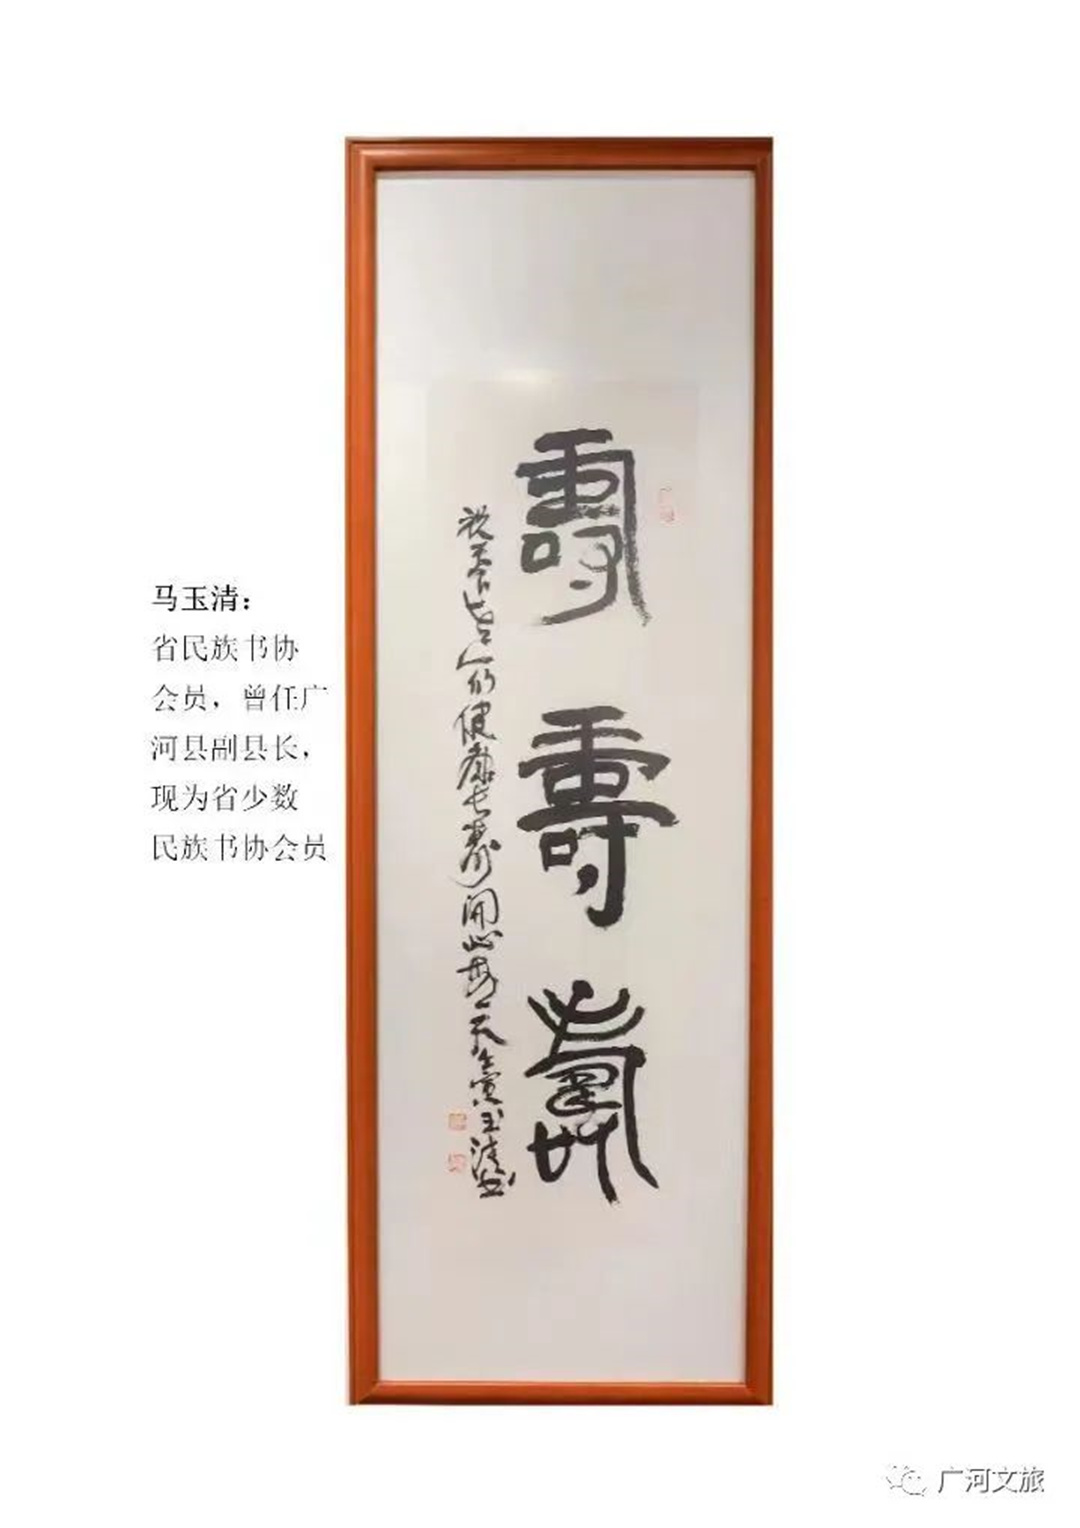 马玉清：
省民族书协
会员，曾任广
河县副县长，
现为省少数
民族书协会员
壽
壽
壽
祝天下老人们健康长寿开心每一天壬寅玉清书
广河文旅